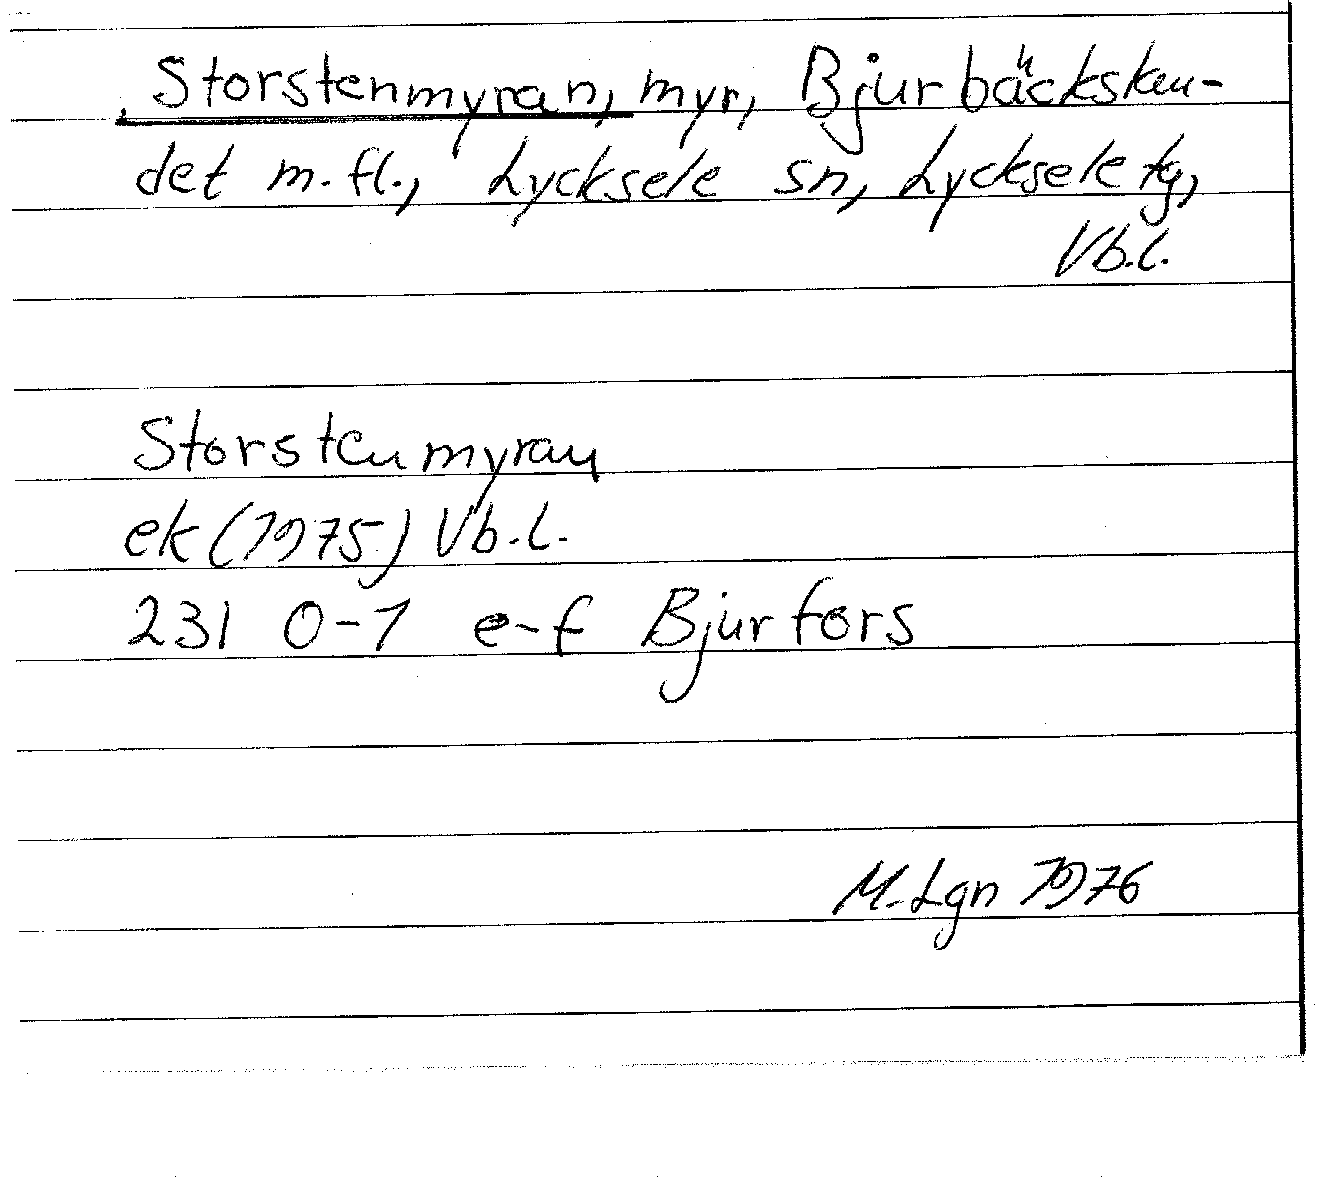 Storstenmyran, myr, Bjurbäckslan-
det m.fl., Lycksele sn, Lycksele tg,
Vb.l.
Storstenmyran
ek (1975) Vb.l.
231 0-1 e-f Bjurfors
M. Lgn 1976